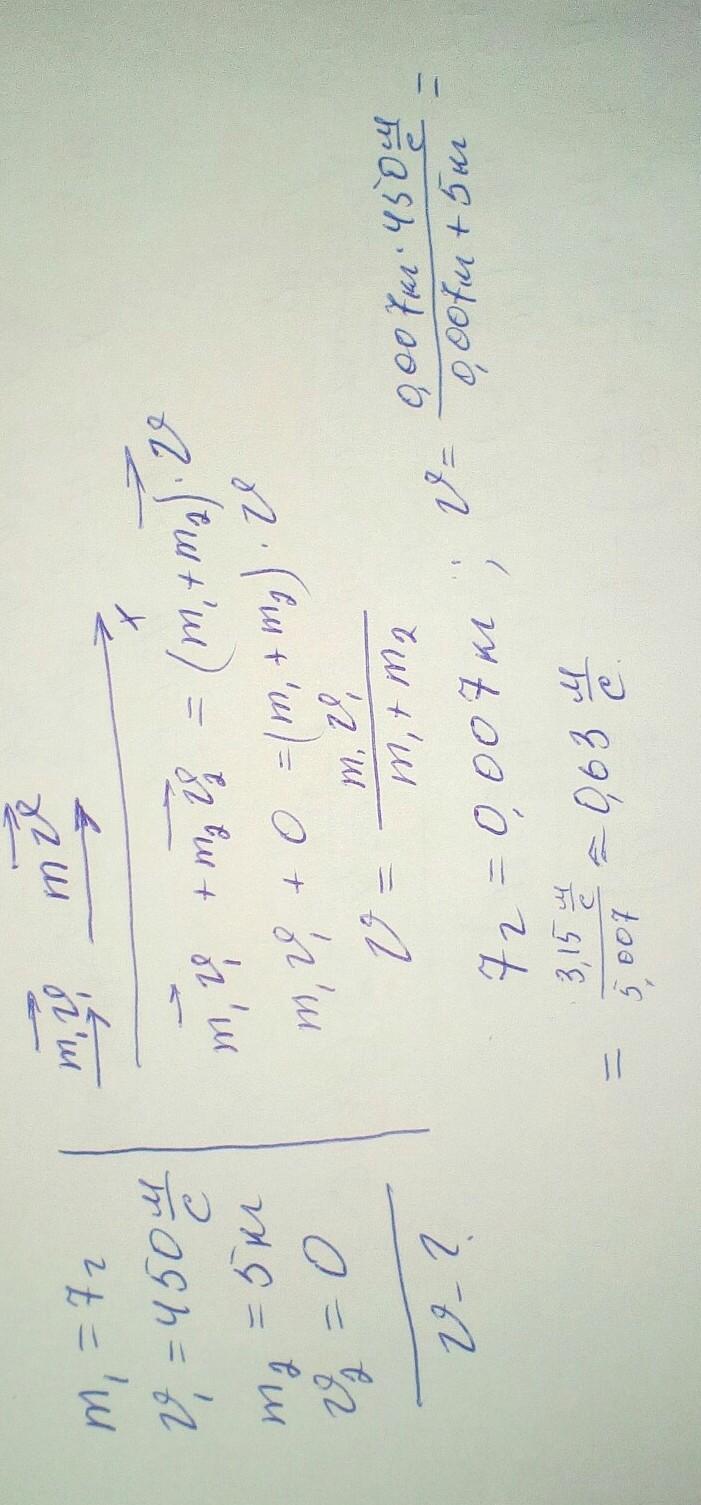 m₁ = 7г
v₁ = 450 м/с
m₂ = 5кг
v₂ = 0
v - ?
m₁v⃗₁ mv⃗
x
m₁v⃗₁ + m₂v⃗₂ = (m₁ + m₂) · v⃗
m₁v₁ + 0 = (m₁ + m₂) · v
v = m₁v₁ / m₁ + m₂
7г = 0,007кг ; v = 0,007кг · 450 м/с / 0,007кг + 5кг =
= 3,15 м/с / 5,007 ≈ 0,63 м/с